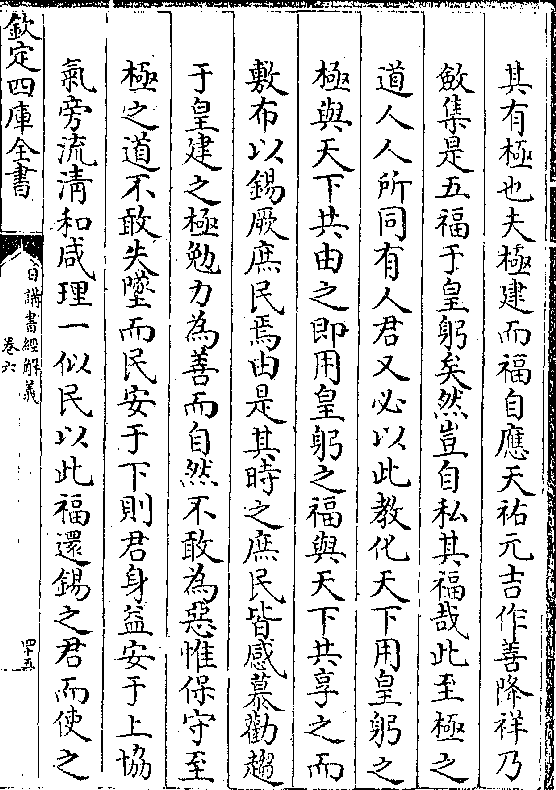 其有極也夫極建而福自應天祐元吉作善降祥乃
斂集是五福于皇躬矣然豈自私其福哉此至極之
道人人所同有人君又必以此教化天下用皇躬之
極與天下共由之即用皇躬之福與天下共享之而
敷布以錫厥庶民焉由是其時之庶民皆感慕勸趨
于皇建之極勉力為善而自然不敢為惡惟保守至
極之道不敢失墜而民安于下則君身益安于上協
氣旁流清和咸理一似民以此福還錫之君而使之
欽定四庫全書
日講書經解義
卷六
四十五